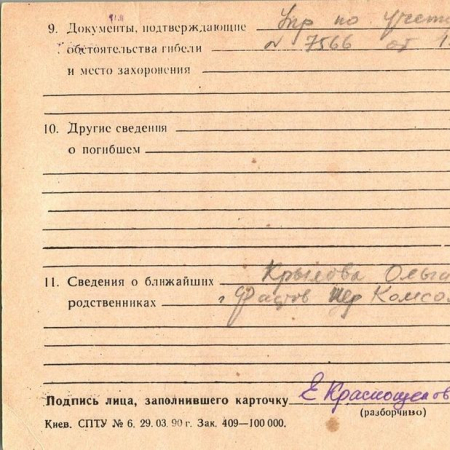 9. Документы, подтверждающие Упр по учету
обстоятельства гибели № 7566 от 1
и место захоронения
10. Другие сведения
о погибшем
11. Сведения о ближайших Крылова Ольга
родственниках г Фастов пер Комсо
Подпись лица, заполнившего карточку Е Краснощеков
(разборчиво)
Киев. СПТУ № 6. 29. 03. 90 г. Зак. 409—100 000.